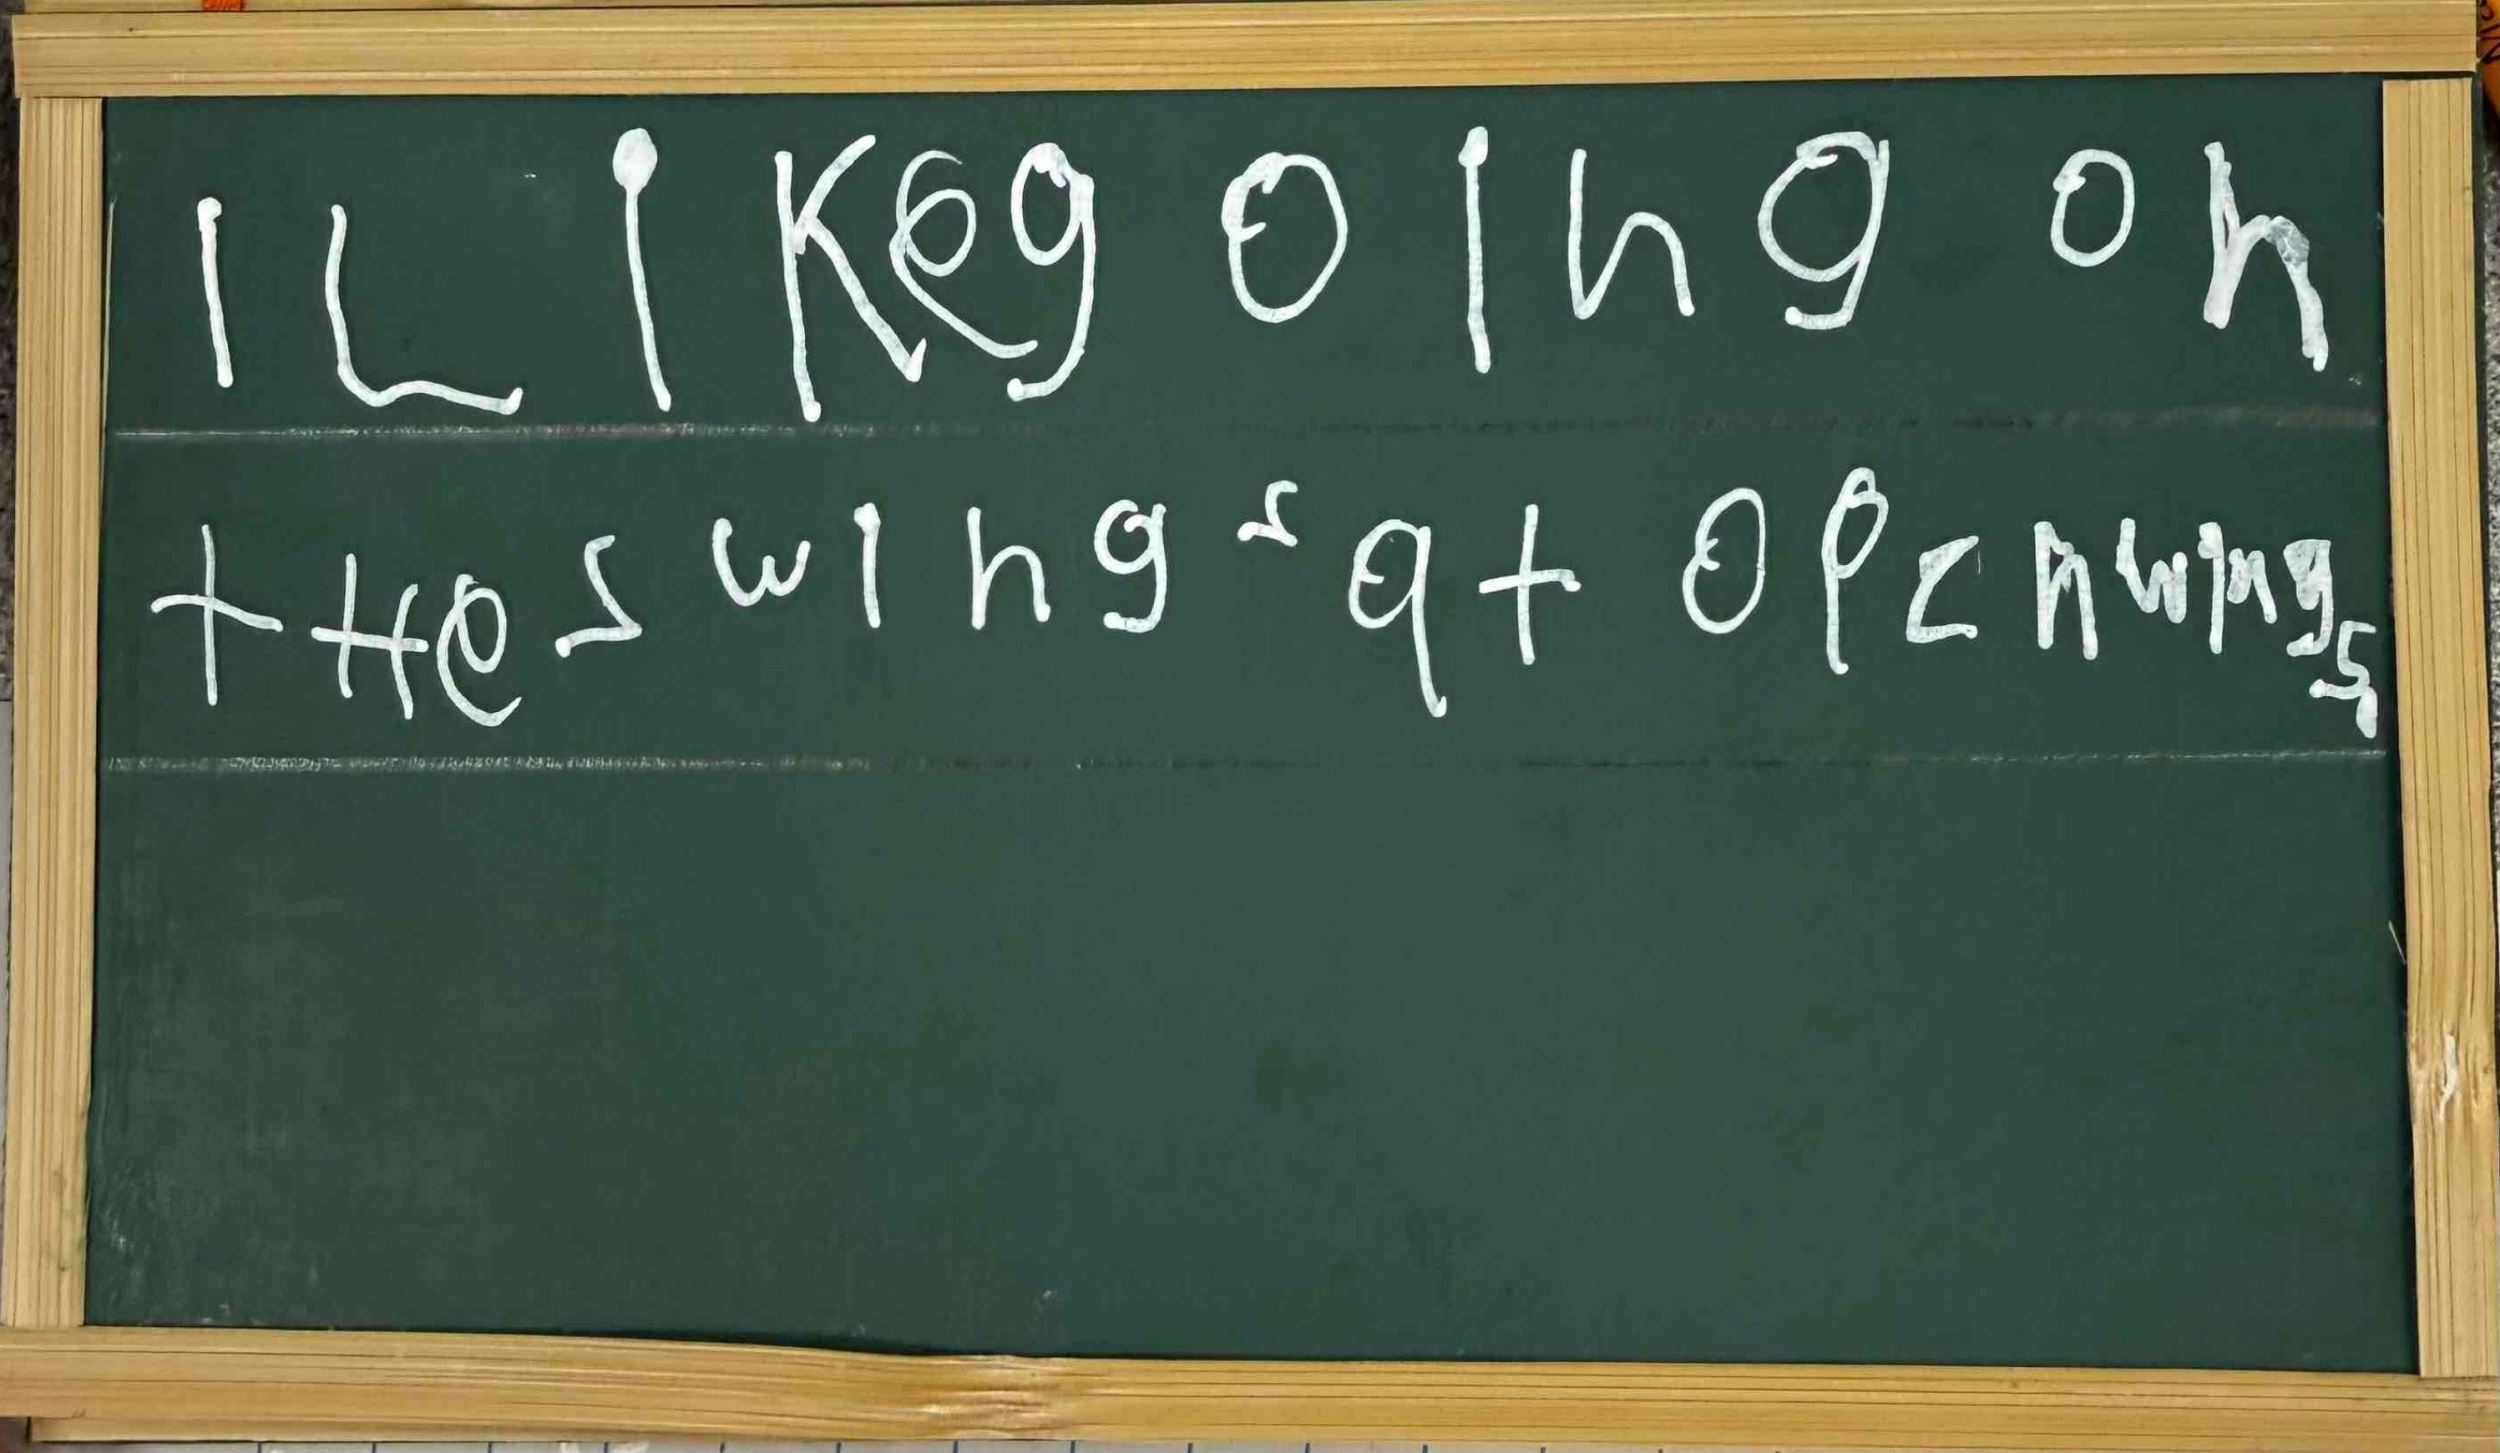 I Like going on
tHe swings at opcnwings